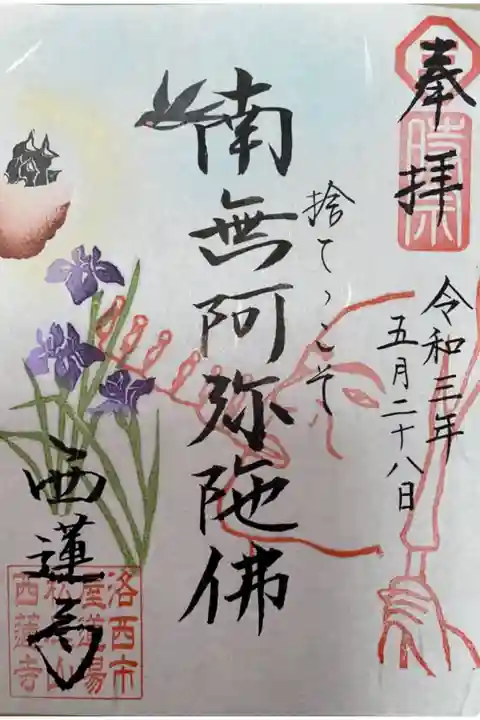 奉拝
時宗
令和三年
五月二十八日
捨てゝこそ
南無阿弥陀佛
西蓮寺
洛西市
屋道場
西蓮寺